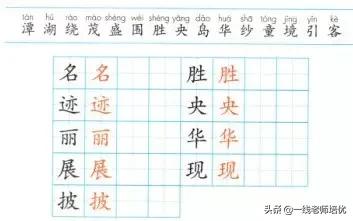 tán hú rào mào shèng wéi shèng yāng dǎo huá shā tóng jìng yǐn kè
潭 湖 绕 茂 盛 围 胜 央 岛 华 纱 童 境 引 客
名 名 胜 胜
迹 迹 央 央
丽 丽 华 华
展 展 现 现
披 披
头条 @一线老师培优